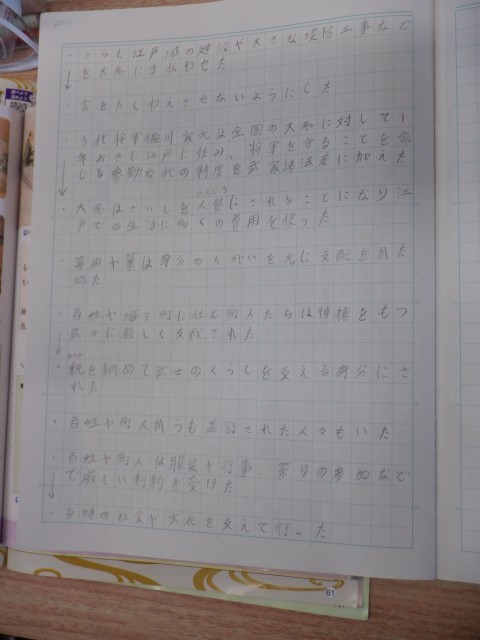 ・さらに江戸城の建設や大きな堤防工事など
を大名に手伝わせた
・富をたくわえさせないようにした
・3代将軍徳川家光は全国の大名に対して1
年おきに江戸に住み、将軍を守ることを命
じる参勤交代の制度を武家諸法度に加えた
・大名はさいしを人質にされることになり江
ひとじち
戸での生活に多くの費用を使った
・幕府や藩は身分のちがいを元に支配を固
めた
・百姓や城下町に住む町人たちは特権をもつ
武士に厳しく支配された
・税を納めて武士のくらしを支える身分にさ
れた
・百姓や町人とは別に差別された人々もいた
・百姓や町人は服装や行事、祭りの参加など
で厳しい制約を受けた
・当時の社会や文化を支えて行った
61